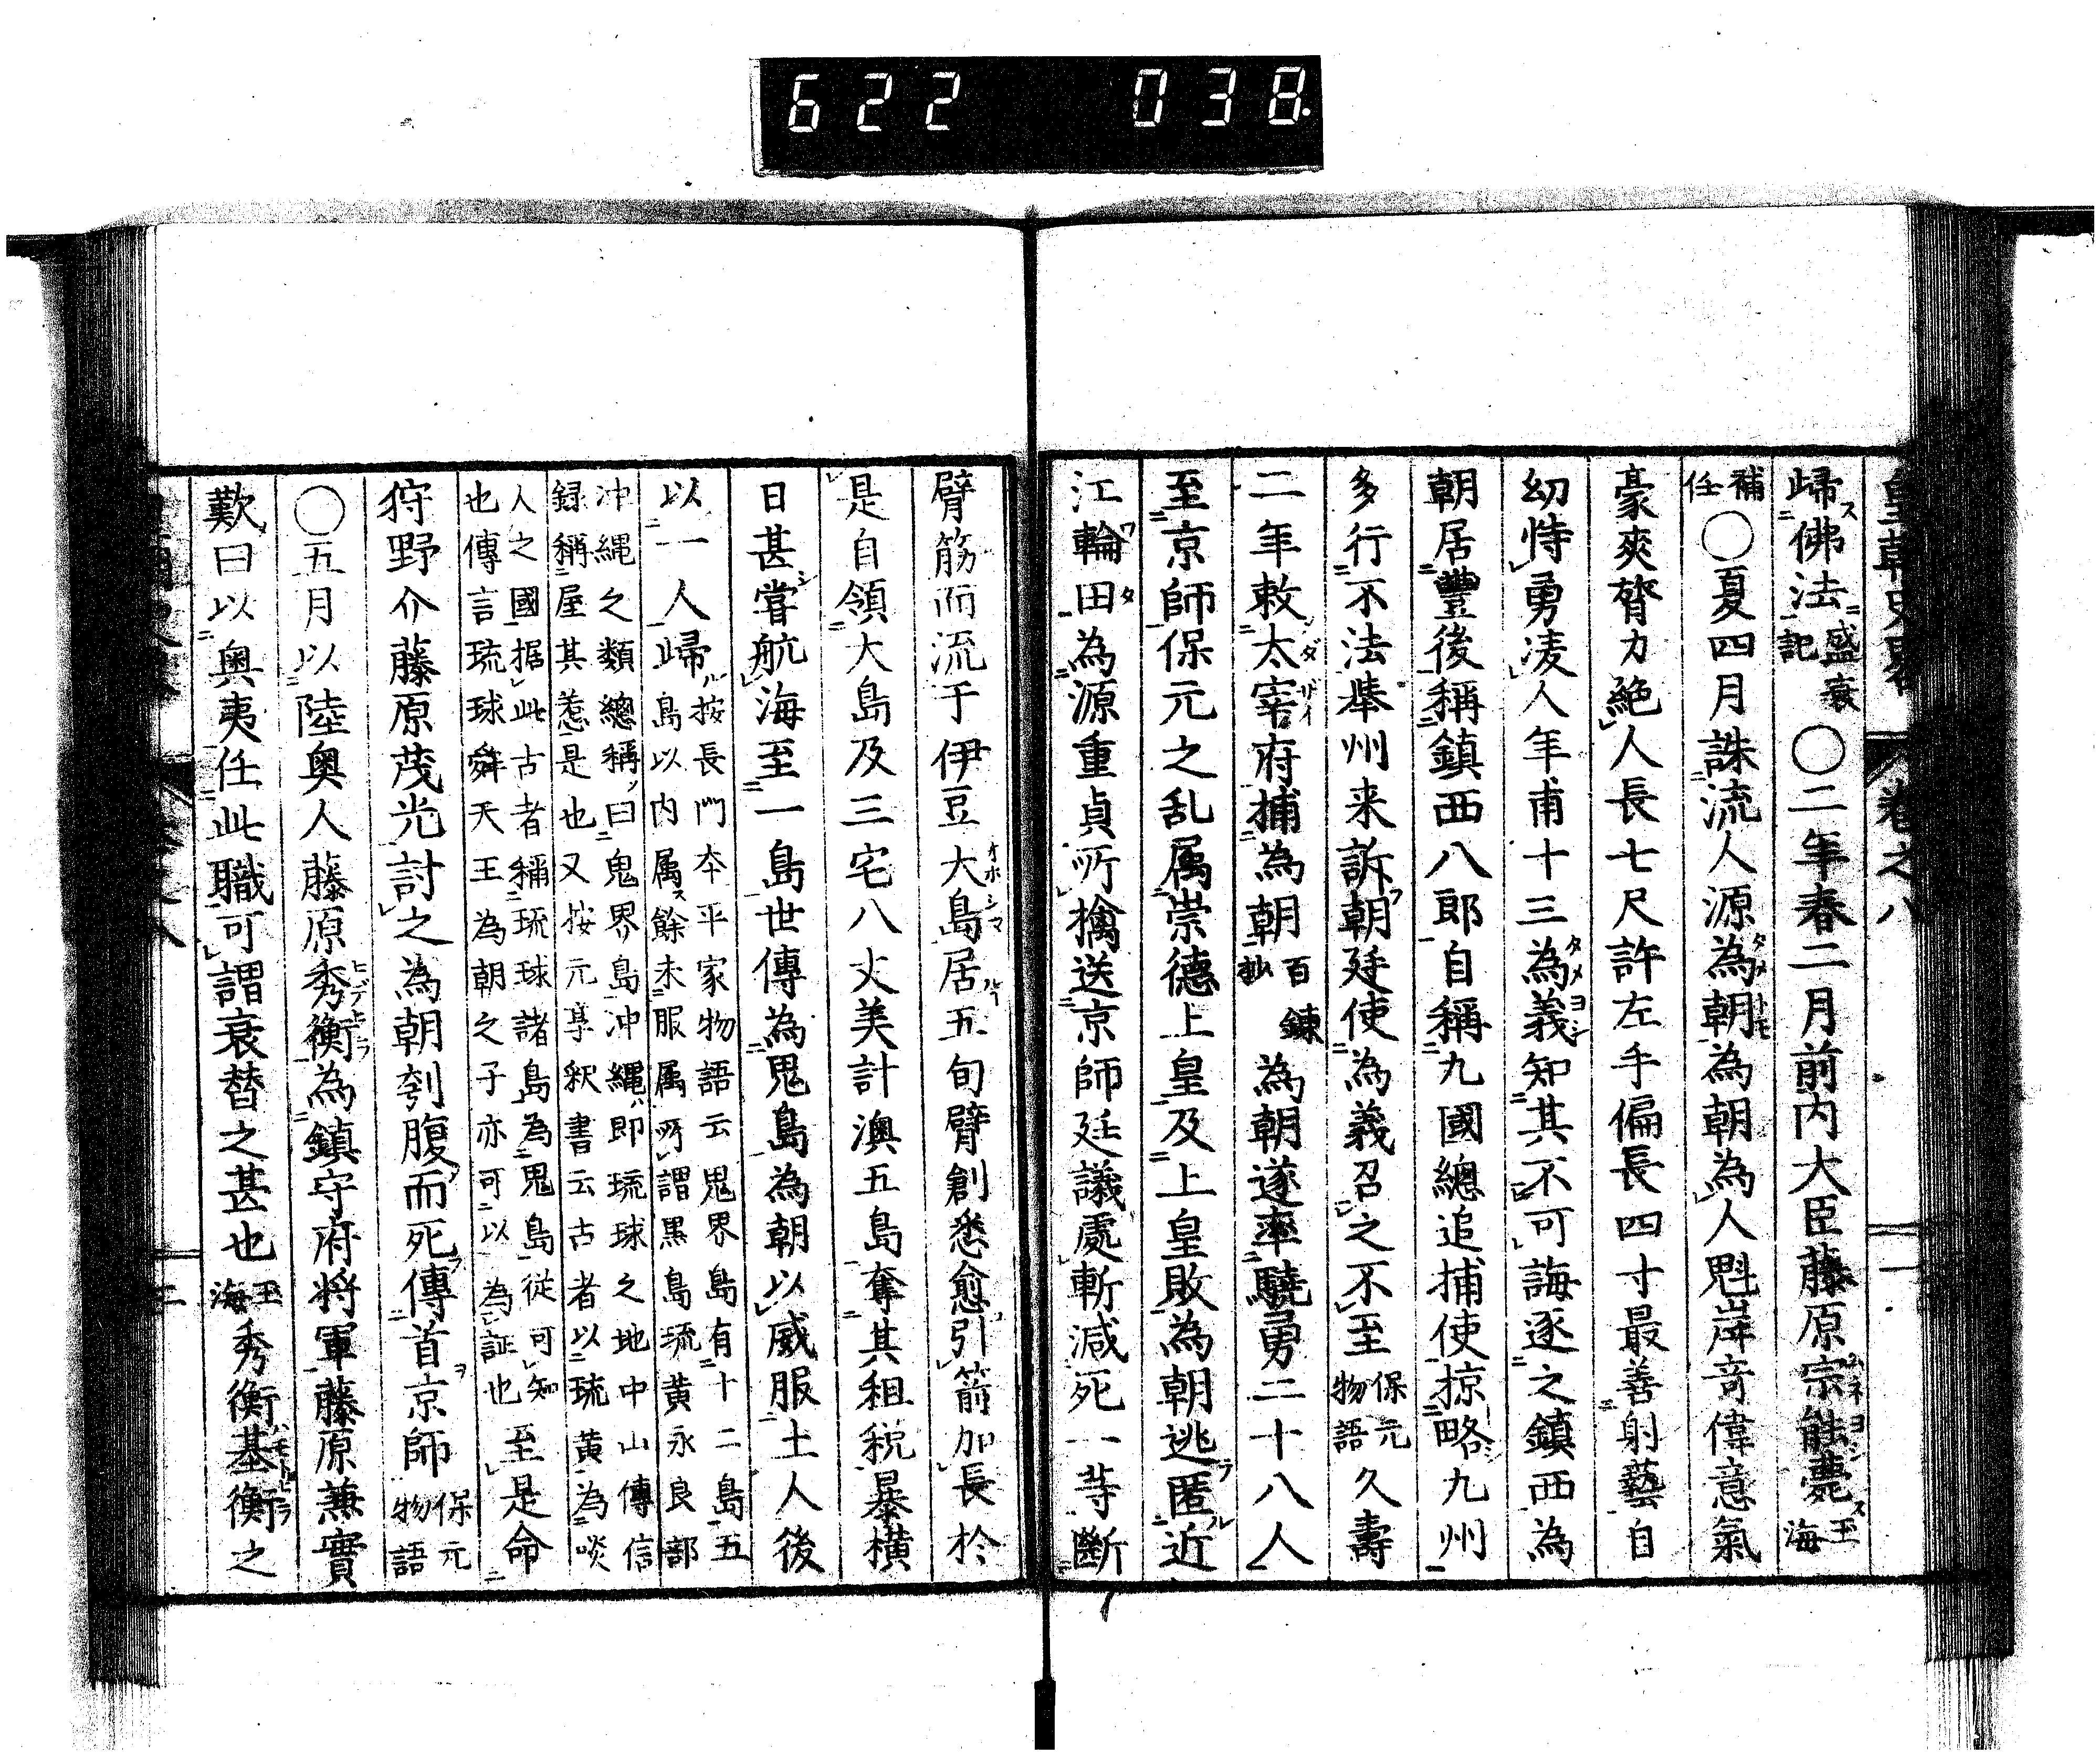 622 038.
皇朝史略 卷之八
歸佛法盛衰記〇二年春二月前内大臣藤原宗能薨玉海
補任〇夏四月誅流人源為朝為朝為人魁岸奇偉意氣
豪爽膂力絶人長七尺許左手偏長四寸最善射藝自
幼恃勇凌人年甫十三為義知其不可誨逐之鎮西為
朝居豐後稱鎮西八郎自稱九國總追捕使掠略九州
多行不法擧州来訴朝廷使為義召之不至保元物語久壽
二年敕太宰府捕為朝百錬抄為朝遂率驍勇二十八人
至京師保元之乱属崇德上皇及上皇敗為朝逃匿近
江輪田為源重貞所擒送京師廷議處斬減死一等斷
臂筋而流于伊豆大島居五旬臂創悉愈引箭加長於
是自領大島及三宅八丈美計澳五島奪其租税暴橫
日甚嘗航海至一島世傳為鬼島為朝以威服土人後
以一人歸按長門本平家物語云鬼界島有十二島五
島以内属餘未服属所謂黒島硫黄永良部
沖縄之類總稱曰鬼界島沖縄即琉球之地中山傳信
録稱屋其惹是也又按元亨釈書云古者以琉黄為啖
人之國据此古者稱琉球諸島為鬼島從可知
也傳言琉球舜天王為朝之子亦可以為証也至是命
狩野介藤原茂光討之為朝刳腹而死傳首京師保元物語
〇五月以陸奥人藤原秀衡為鎮守府将軍藤原兼實
歎曰以奥夷任此職可謂衰替之甚也玉海秀衡基衡之